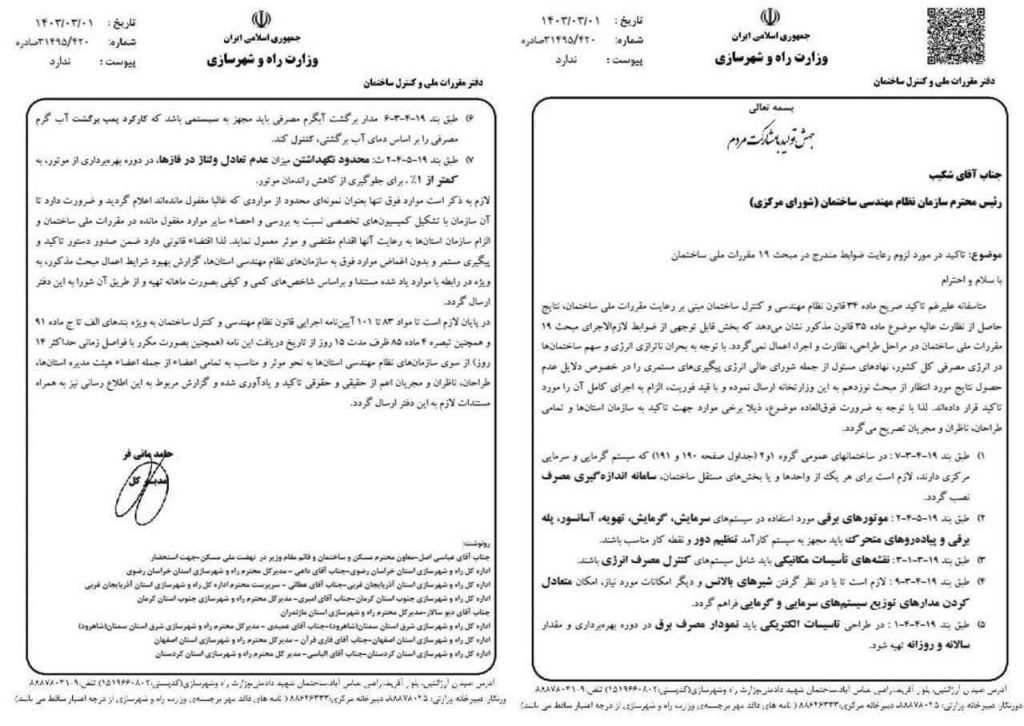 جمهوری اسلامی ایران
وزارت راه و شهرسازی
تاریخ : ۱۴۰۳/۰۳/۰۱
شماره: ۳۱۴۹۵/۴۲۰صادره
پیوست : ندارد
دفتر مقررات ملی و کنترل ساختمان
بسمه تعالی
جهش تولید با مشارکت مردم
جناب آقای شکیب
رئیس محترم سازمان نظام مهندسی ساختمان (شورای مرکزی)
موضوع: تاکید در مورد لزوم رعایت ضوابط مندرج در مبحث ۱۹ مقررات ملی ساختمان
با سلام و احترام
متاسفانه علیرغم تاکید صریح ماده ۳۴ قانون نظام مهندسی و کنترل ساختمان مبنی بر رعایت مقررات ملی ساختمان، نتایج
حاصل از نظارت عالیه موضوع ماده ۳۵ قانون مذکور نشان می‌دهد که بخش قابل توجهی از ضوابط لازم‌الاجرای مبحث ۱۹
مقررات ملی ساختمان در مراحل طراحی، نظارت و اجرا، اعمال نمی‌گردد. با توجه به بحران ناترازی انرژی و سهم ساختمان‌ها
در انرژی مصرفی کل کشور، نهادهای مسئول از جمله شورای عالی انرژی پیگیری‌های مستمری را در خصوص دلایل عدم
حصول نتایج مورد انتظار از مبحث نوزدهم به این وزارتخانه ارسال نموده و با قید فوریت، الزام به اجرای کامل آن را مورد
تاکید قرار داده‌اند. لذا با توجه به ضرورت فوق‌العاده موضوع، ذیلا برخی موارد جهت تاکید به سازمان استان‌ها و تمامی
طراحان، ناظران و مجریان تصریح می‌گردد.
۱) طبق بند ۱۹-۴-۳-۷ : در ساختمانهای عمومی گروه ۱و۲ (جداول صفحه ۱۹۰ و ۱۹۱) که سیستم گرمایی و سرمایی
مرکزی دارند، لازم است برای هر یک از واحدها و یا بخش‌های مستقل ساختمان، سامانه اندازه‌گیری مصرف
نصب گردد.
۲) طبق بند ۱۹-۵-۴-۲ : موتورهای برقی مورد استفاده در سیستم‌های سرمایش، گرمایش، تهویه، آسانسور، پله
برقی و پیاده‌روهای متحرک باید مجهز به سیستم کارآمد تنظیم دور و نقطه کار مناسب باشند.
۳) طبق بند ۱۹-۳-۱-۳ : نقشه‌های تأسیسات مکانیکی باید شامل سیستم‌های کنترل مصرف انرژی باشند.
۴) طبق بند ۱۹-۴-۳-۹ : لازم است تا با در نظر گرفتن شیرهای بالانس و دیگر امکانات مورد نیاز، امکان متعادل
کردن مدارهای توزیع سیستم‌های سرمایی و گرمایی فراهم گردد.
۵) طبق بند ۱۹-۴-۴-۱ : در طراحی تاسیسات الکتریکی باید نمودار مصرف برق در دوره بهره‌برداری و مقدار
سالانه و روزانه تهیه شود.
آدرس :میدان آرژانتین، بلوار آفریقا،اراضی عباس آباد،ساختمان شهید دادمان،وزارت راه وشهرسازی(کدپستی:۱۵۱۹۶۶۰۸۰۲) تلفن:۹-۸۸۸۷۸۰۳۱
دورنگار: دبیرخانه وزارتی: ۸۸۸۷۸۰۴۵، دبیرخانه مرکزی:۸۸۶۴۶۳۳۳ ( نامه های فاقد مهر برجسته‌ی وزارت راه و شهرسازی از درجه اعتبار ساقط می باشد)
جمهوری اسلامی ایران
وزارت راه و شهرسازی
تاریخ : ۱۴۰۳/۰۳/۰۱
شماره: ۳۱۴۹۵/۴۲۰صادره
پیوست : ندارد
دفتر مقررات ملی و کنترل ساختمان
۶) طبق بند ۱۹-۴-۳-۶ مدار برگشت آبگرم مصرفی باید مجهز به سیستمی باشد که کارکرد پمپ برگشت آب گرم
مصرفی را بر اساس دمای آب برگشتی، کنترل کند.
۷) طبق بند ۱۹-۵-۴-۲ ث: محدود نگهداشتن میزان عدم تعادل ولتاژ در فازها، در دوره بهره‌برداری از موتور، به
کمتر از ۱٪ ، برای جلوگیری از کاهش راندمان موتور.
لازم به ذکر است موارد فوق تنها بعنوان نمونه‌ای محدود از مواردی که غالبا مغفول مانده‌اند اعلام گردید و ضرورت دارد تا
آن سازمان با تشکیل کمیسیون‌های تخصصی نسبت به بررسی و احصاء سایر موارد مغفول مانده در مقررات ملی ساختمان و
الزام سازمان استان‌ها به رعایت آنها اقدام مقتضی و موثر معمول نماید. لذا اقتضاء قانونی دارد ضمن صدور دستور تاکید و
پیگیری مستمر و بدون اغماض موارد فوق به سازمان‌های نظام مهندسی استان‌ها، گزارش بهبود شرایط اعمال مبحث مذکور، به
ویژه در رابطه با موارد یاد شده مستندا و براساس شاخص‌های کمی و کیفی بصورت ماهانه تهیه و از طریق آن شورا به این دفتر
ارسال گردد.
در پایان لازم است تا مواد ۸۳ تا ۱۰۱ آیین‌نامه اجرایی قانون نظام مهندسی و کنترل ساختمان به ویژه بندهای الف تا ج ماده ۹۱
و همچنین تبصره ۴ ماده ۸۵ ظرف مدت ۱۵ روز از تاریخ دریافت این نامه (همچنین بصورت مکرر با فواصل زمانی حداکثر ۱۴
روز) از سوی سازمان‌های نظام مهندسی استان‌ها به نحو موثر و مناسب به تمامی اعضاء از جمله اعضاء هیئت مدیره استان‌ها،
طراحان، ناظران و مجریان اعم از حقیقی و حقوقی تاکید و یادآوری شده و گزارش مربوط به این اطلاع رسانی نیز به همراه
مستندات لازم به این دفتر ارسال گردد.
حامد مانی فر
مدیر کل
رونوشت:
جناب آقای عباسی اصل-معاون محترم مسکن و ساختمان و قائم مقام وزیر در نهضت ملی مسکن-جهت استحضار
اداره کل راه و شهرسازی استان خراسان رضوی-جناب آقای داعی - مدیرکل محترم راه و شهرسازی استان خراسان رضوی
اداره کل راه و شهرسازی استان آذربایجان غربی-جناب آقای عطائی - سرپرست محترم اداره کل راه و شهرسازی استان آذربایجان غربی
اداره کل راه و شهرسازی جنوب استان کرمان-جناب آقای امیری-مدیرکل محترم راه و شهرسازی جنوب استان کرمان
جناب آقای دیو سالار-مدیرکل محترم راه و شهرسازی استان مازندران
اداره کل راه و شهرسازی شرق استان سمنان(شاهرود)-جناب آقای عمیدی - مدیرکل محترم راه و شهرسازی شرق استان سمنان(شاهرود)
اداره کل راه و شهرسازی استان اصفهان-جناب آقای قاری قرآن - مدیرکل محترم راه و شهرسازی استان اصفهان
اداره کل راه و شهرسازی استان کردستان-جناب آقای الیاسی- مدیر کل محترم راه و شهرسازی استان کردستان
آدرس :میدان آرژانتین، بلوار آفریقا،اراضی عباس آباد،ساختمان شهید دادمان،وزارت راه وشهرسازی(کدپستی:۱۵۱۹۶۶۰۸۰۲) تلفن:۹-۸۸۸۷۸۰۳۱
دورنگار: دبیرخانه وزارتی: ۸۸۸۷۸۰۴۵، دبیرخانه مرکزی:۸۸۶۴۶۳۳۳ ( نامه های فاقد مهر برجسته‌ی وزارت راه و شهرسازی از درجه اعتبار ساقط می باشد)